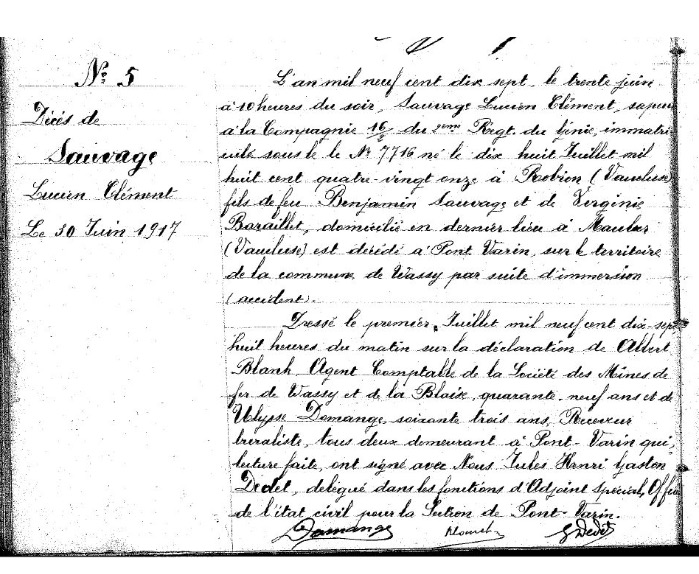 N° 5
Décès de
Sauvage
Lucien Clément
Le 30 Juin 1917
L'an mil neuf cent dix sept, le trente juin
à 10 heures du soir, Sauvage Lucien Clément, sapeur
à la Compagnie 16/ du 2eme Régt. du Génie, immatri
culé sous le le N° 7716 né le dix huit Juillet mil
huit cent quatre-vingt onze à Robion (Vaucluse)
fils de feu Benjamin Sauvage et de Virginie
Baraillet, domicilié en dernier lieu à
(Vaucluse) est décédé à Pont Varin, sur le territoire
de la commune de Wassy par suite d'immersion
(accident).
Dressé le premier, Juillet mil neuf cent dix-sept
huit heures du matin sur la déclaration de Albert
Blanh Agent Comptable de la Société des Mines de
fer de Wassy et de la Blaise, quarante neuf ans et de
Ulysse Demange, soixante trois ans, Receveur
buraliste, tous deux demeurant à Pont-Varin qui,
lecture faite, ont signé avec Nous Jules Henri Gaston
Dedet, délégué dans les fonctions d'Adjoint Spécial, Offici
de l'état civil pour la Section de Pont-Varin.
Demange
G Dedet